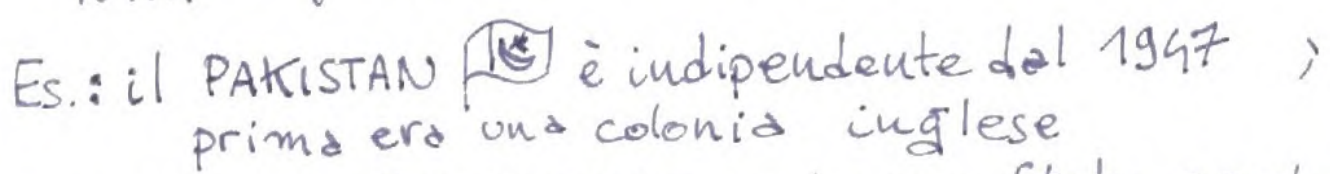 Es.: il PAKISTAN è indipendente dal 1947,
prima era una colonia inglese